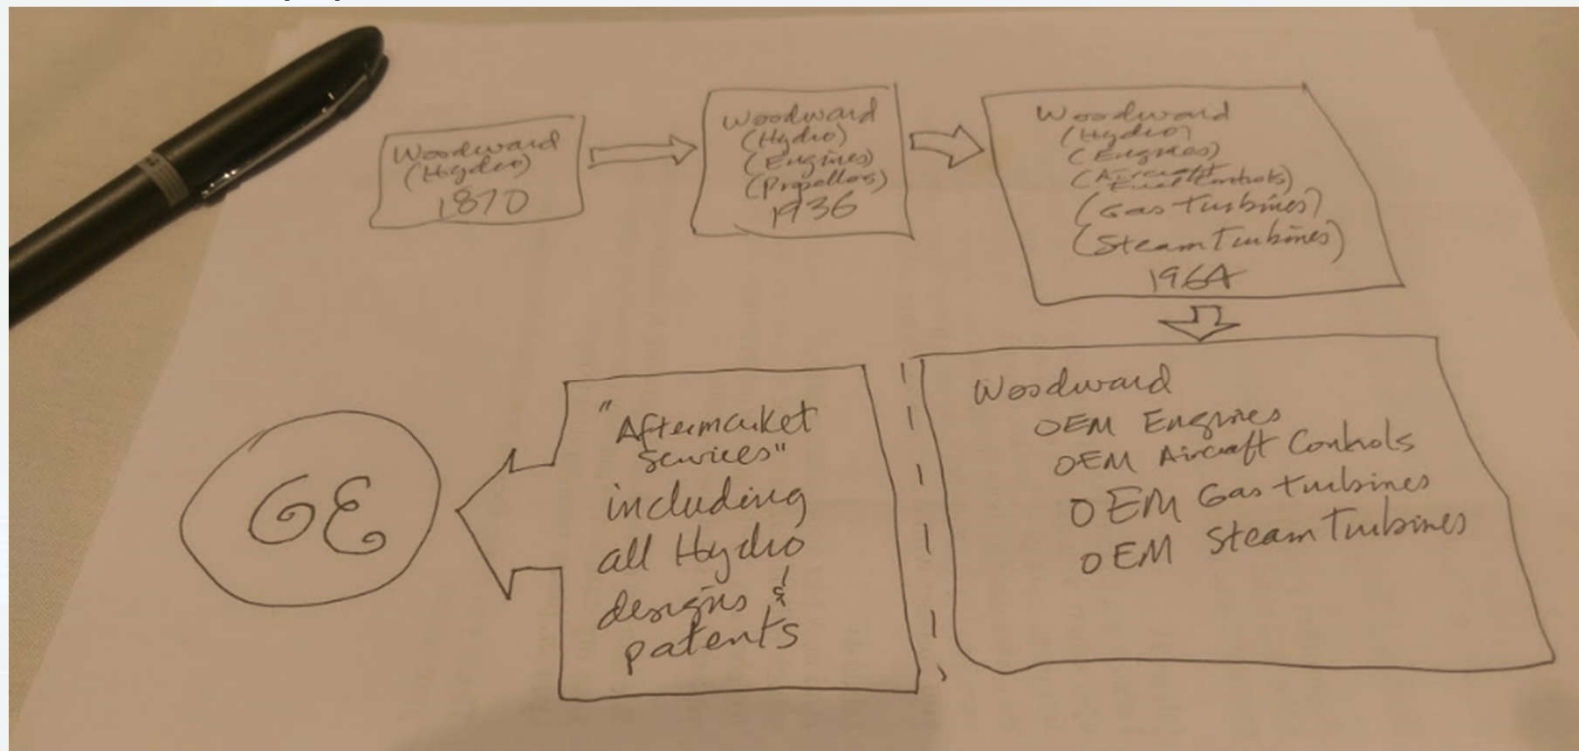 Woodward
(Hydro)
1870
Woodward
(Hydro)
(Engines)
(Propellors)
1936
Woodward
(Hydro)
(Engines)
(Aircraft
Fuel Controls)
(Gas Turbines)
(Steam Turbines)
1964
Woodward
OEM Engines
OEM Aircraft Controls
OEM Gas Turbines
OEM Steam Turbines
"Aftermarket
Services"
including
all Hydro
designs &
patents
GE